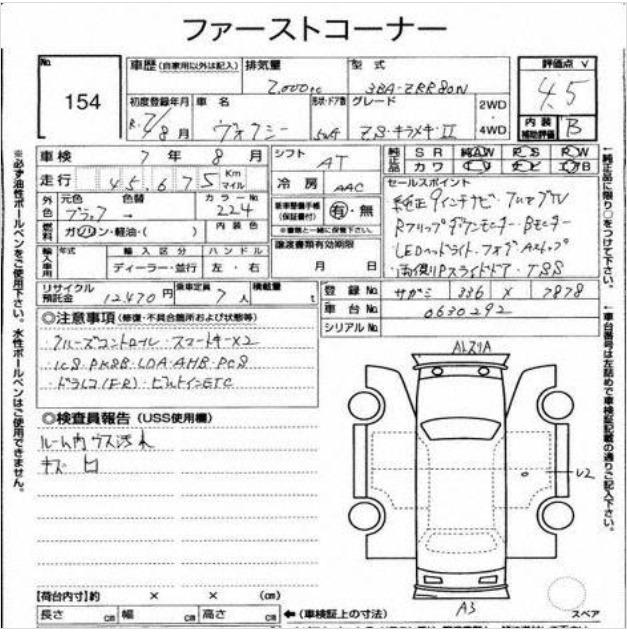 ファーストコーナー
No.
154
車歴(自家用以外は記入)
排気量
2,000 cc
型式
3BA-ZRR80N
評価点
4.5
初度登録年月
R.2/8月
車名
ヴォクシー
形状・ドア数
5W
グレード
ZS・キラメキ・II
2WD
・
4WD
内装
補助評価
B
車検 7年 8月
シフト AT
純正品 SR AW PS PW
カワ ナビ TV エアB
走行 45,675 Km マイル
冷房 AAC
セールスポイント
外色 元色 色替 カラーNo.
ブラック → 224
新車整備手帳
(保証書付)
有・無
※書類と一緒に保管下さい。
純正9インチナビ・フルセグTV
Rフリップダウンモニター・Bモニター
LEDヘッドライト・フォグ・Aストップ
両側Pスライドドア・TSS
燃料 ガソリン・軽油・( ) 内装色
輸入車用 年式 輸入区分 ハンドル
ディーラー・並行 左・右
譲渡書類有効期限
月 日
リサイクル
預託金
12,470円
乗車定員 7人
積載量 t
登録No. サガミ 336 ス 7878
車台No. 0630292
シリアルNo.
◎注意事項(修復・不具合箇所および状態等)
クルーズコントロール・スマートキーX2
ICS・PKSB・LDA・AHB・PCS
ドラレコ(F・R)・ビルトインETC
◎検査員報告(USS使用欄)
ルーム内ウス汚れ
キズ
U2
A3
スペア
【荷台内寸】約 × × (cm)
長さ cm 幅 cm 高さ cm
←(車検証上の寸法)
※必ず油性ボールペンをご使用下さい。水性ボールペンはご使用できません。
←純正品に限り○をつけて下さい。
←車台番号は左詰めで車検証記載の通りご記入下さい。